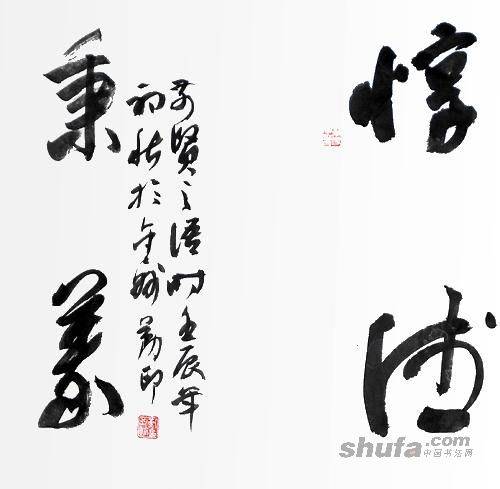 惇德
秉義
前賢之語时壬辰年
初秋於金城 印
shufa.com
中国书法网